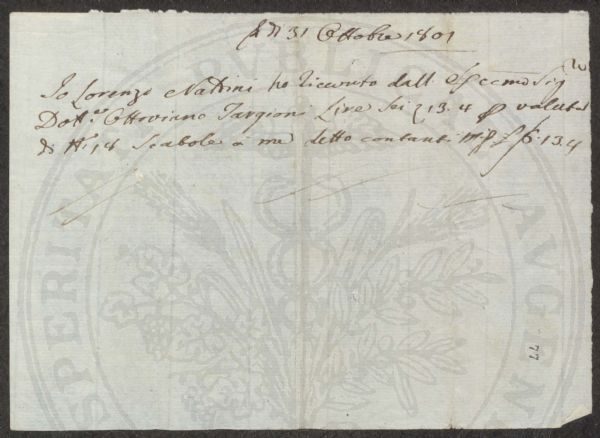 A dì 31 Ottobre 1801
Io Lorenzo Nattini ho ricevuto dall Eccmo Sig
Dott.e Ottaviano Targioni Lire Sei 13.4 p valuta
di N. 18 Scatole a me detto contanti £ 6.13.4
77
PROSPERITATI PUBLICAE AUGEN